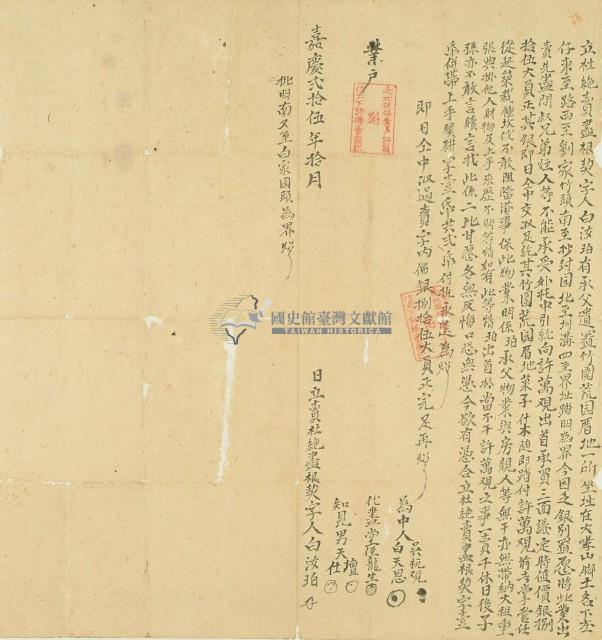 立杜絕賣盡根契字人白汝珀有承父遺置竹園荒园厝地一所坐址在大
仔東至路西至劉家竹頭南至 封园北至圳溝四至界址踏明為界今因乏銀別置愿將此業出
賣先盡問叔兄弟姪人等不能承受外托中引就向許萬观出首承買三面議定時值價銀捌
拾伍大員正其銀即日仝中交收足訖其竹園荒园厝地菓子什木隨即踏付許萬观前去掌管任
從起築栽種坎伐不敢阻當滋事保此物業明係珀承父物業與房親人等無干亦無帶納大租重
張典掛他人財物及上手來歷不明等情如有此等情珀出首抵當不干許萬观之事一賣千休日後子
孫亦不敢言贖言找此係二比甘愿各無反悔口恐無憑今欲有憑合立杜絕賣盡根契字壹
帋併帶上手 字壹帋共弍帋付执永遠為炤
即日仝中收過賣字內佛銀捌拾伍大員正完足再炤
為中人
吳玩观
白天恩
代書堂侄龍生
知見男天
壇
仕
日立賣杜絕盡根契字人白汝珀
業戶
嘉慶弍拾伍年拾月
批明南又至白家园頭為界炤
國史館臺灣文獻館
TAIWAN HISTORICA